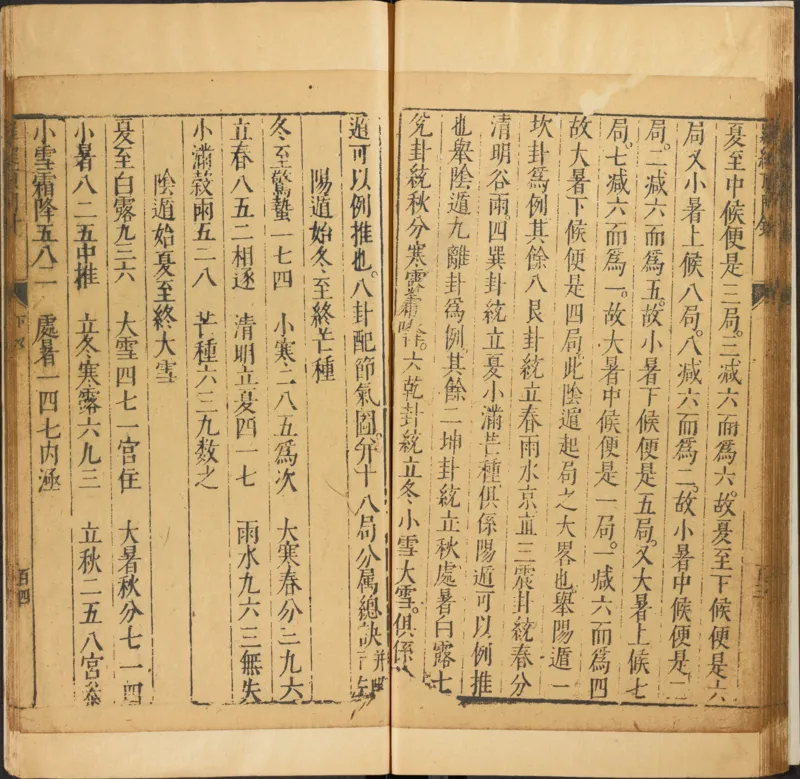 夏至中候便是三局。三減六而爲六。故夏至下候便是六
局。又小暑上候八局。八減六而爲二。故小暑中候便是二
局。二減六而爲五。故小暑下候便是五局。又大暑上候七
局。七減六而爲一。故大暑中候便是一局。一減六而爲四
故大暑下候便是四局。此陰遁起局之大畧也。舉陽遁一
坎卦爲例其餘八艮卦統立春雨水京直三震卦統春分
清明谷雨。四巽卦統立夏小滿芒種俱係陽遁可以例推
也舉陰遁九離卦爲例。其餘二坤卦統立秋處暑白露七
兌卦統秋分寒露霜降。六乾卦統立冬小雪大雪。俱係
遁可以例推也。八卦配節氣圖。分十八局分属總訣
陽遁始冬至終芒種
冬至驚蟄一七四 小寒二八五爲次 大寒春分三九六
立春八五二相逐 清明立夏四一七 雨水九六三無失
小滿穀雨五二八 芒種六三九数之
陰遁始夏至終大雪
夏至白露九三六 大雪四七一宮住 大暑秋分七一四
小暑八二五中推 立冬寒露六九三 立秋二五八宮
小雪霜降五八二 處暑一四七内涵
百四